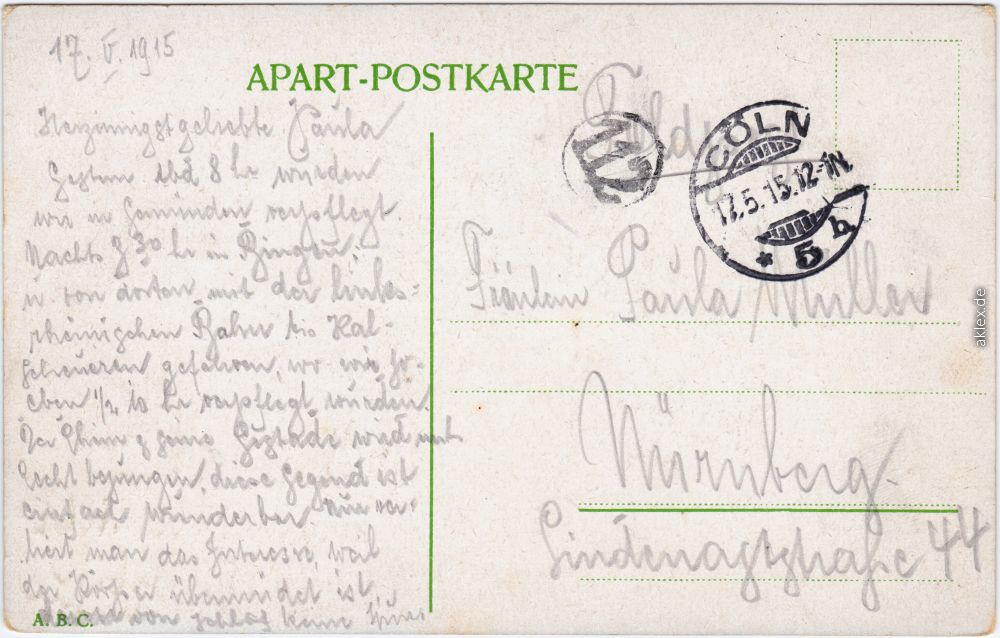 17. V. 1915
APART-POSTKARTE
Herzinnigstgeliebte Paula
Gestern abd 8 hr wurden
wir in Gemünden verpflegt.
Nachts 3 30 hr in Bingen.
u. von dorten mit der links=
rheinischen Bahn bis Kal-
scheueren gefahren, wo wir so-
eben 1/2 10 hr verpflegt wurden.
Der Rhein u seine Gestade wird mit
Recht besungen, diese Gegend ist
einfach wunderbar. Nur ver-
liert man das Interesse, weil
der Körper übermüdet ist,
von Schlaf keine Spur
A. B. C.
Feldp
112
CÖLN
17.5.15.12-1N.
* 5 h
Fräulein Paula Müller
Nürnberg.
Lindenaststraße 44
aklex.de